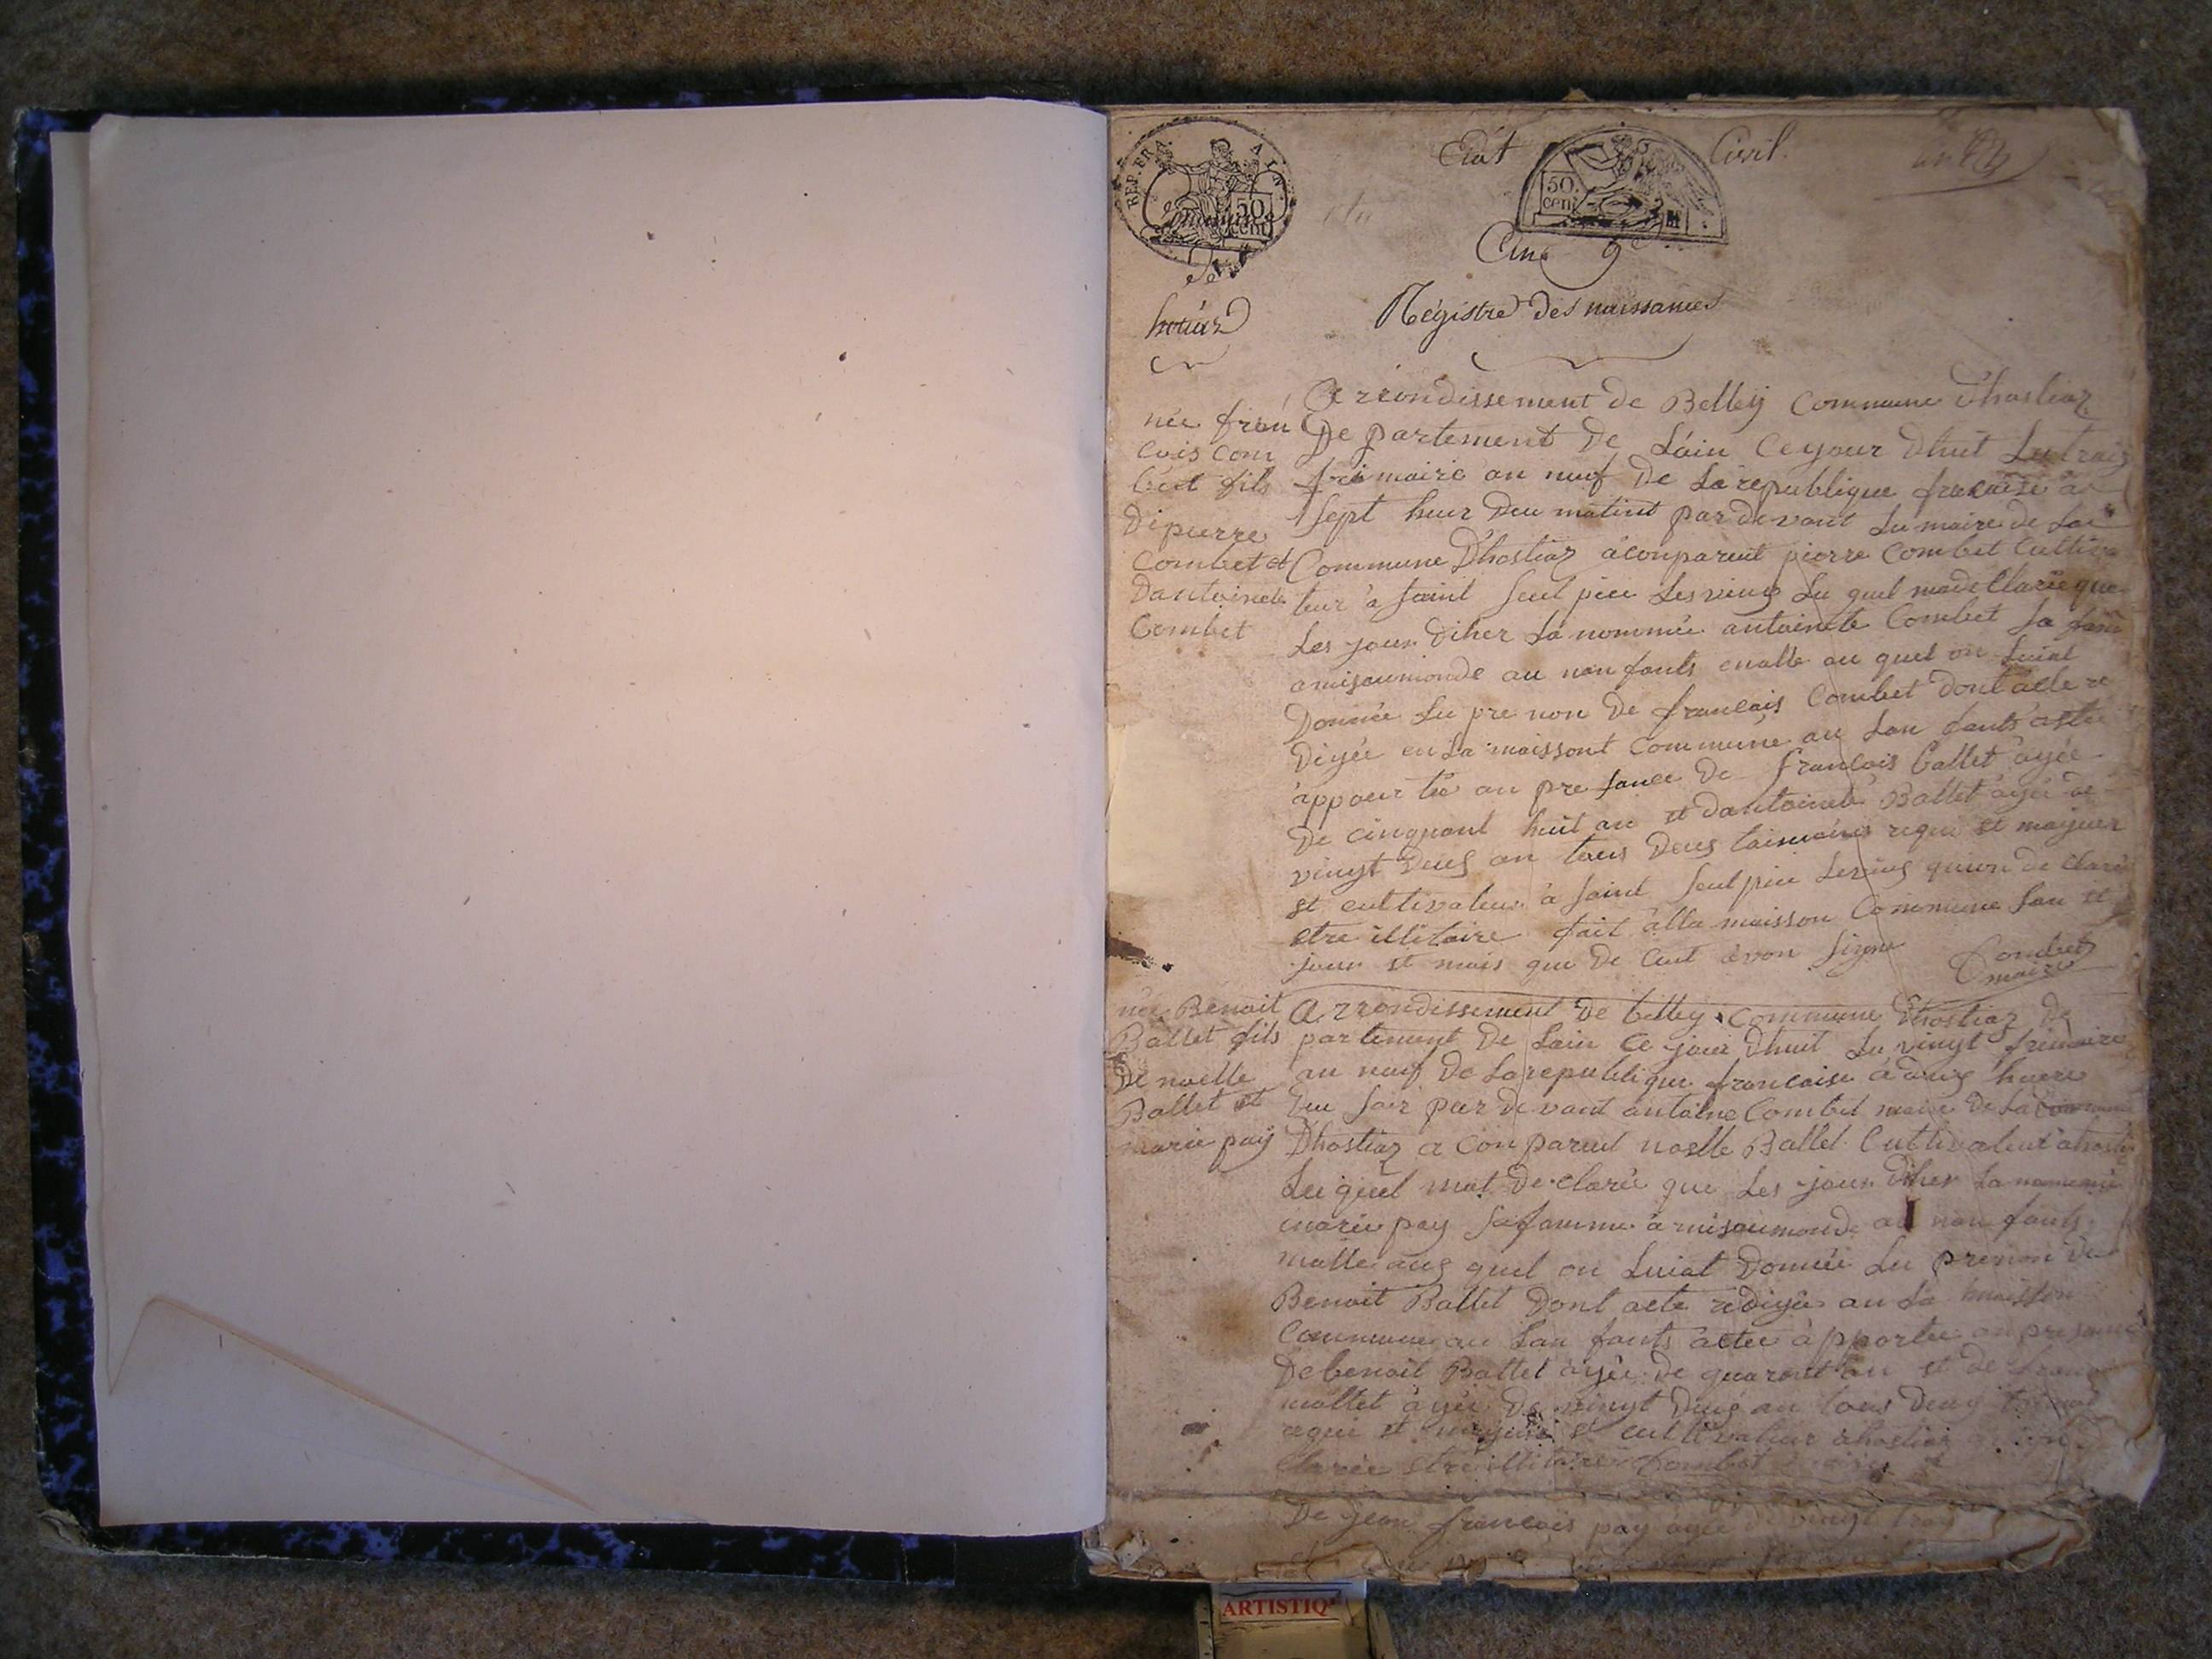 REP. FRA. AIN.
50 cent
État Civil.
50. cent
an 9
An 9e
Commune
de
hotiaz
Régistre des naissances
née fran
cois com
bet fils
De pierre
Combet et
Dantoinete
Combet
Arrondissement de Belley Commune Dhostiaz
De partement De Lain Ce your Dhuit Lu trois
frimaire an neuf De La republique francaise à
Sept heur Deu matint par devant Lu maire de La
Commune Dhostiaz à conpareut pierre Combet Cultiva
teur à Saint Seul pice Les vieus Lu quel ma de Clarée que
Les jour Diher La nommée antoinete Combet Sa fam
a misaumonde au nan fants malle au quel on Luiat
Donnée Lu pre non De francais Combet Dont acte re
Digée en La maissont Commune au Lan fants astée
appoeur tée an pre sance De francois Ballet agée
De cinquant huit an et Dantoinete Ballet agée de
vingt Deus an tous Deus taimoins requi et majeur
et cultivateur à Saint Seul pice Les vieus quion de Clarée
etre illitaire fait àlla maisson Commune Lan et
jour et mois que De Cut avon Signe
Combet
maire
née Benoit
Ballet fils
De noelle
Ballet et
marie pay
Arrondissement De belley Commune Dhostiaz De
partement De Lain Ce jour Dhuit Lu vingt frimaire
an neuf De La republique francaise à heure
Deu Soir par devant antoine Combet maire De La Commune
Dhostiaz a Conpareut noelle Ballet Cultivateur ahostiaz
Lu quel mat De clarée que Les jour Diher La nommée
marie pay Sa famme à misaumonde au nan fants
malle aus quel on Luiat Donnée Lu prenon De
Benoit Ballet Dont acte redigée an La maisson
Commune au Lan fants actée àpportée an presance
De benoit Ballet agée De quarant an et De
mollet agée De vingt Deus an tous Deus
requi et majeur et cultivateur ahostiaz
Clarée etre illitaire Combet
De jean francois pay agée de vingt trois
ARTISTIQ